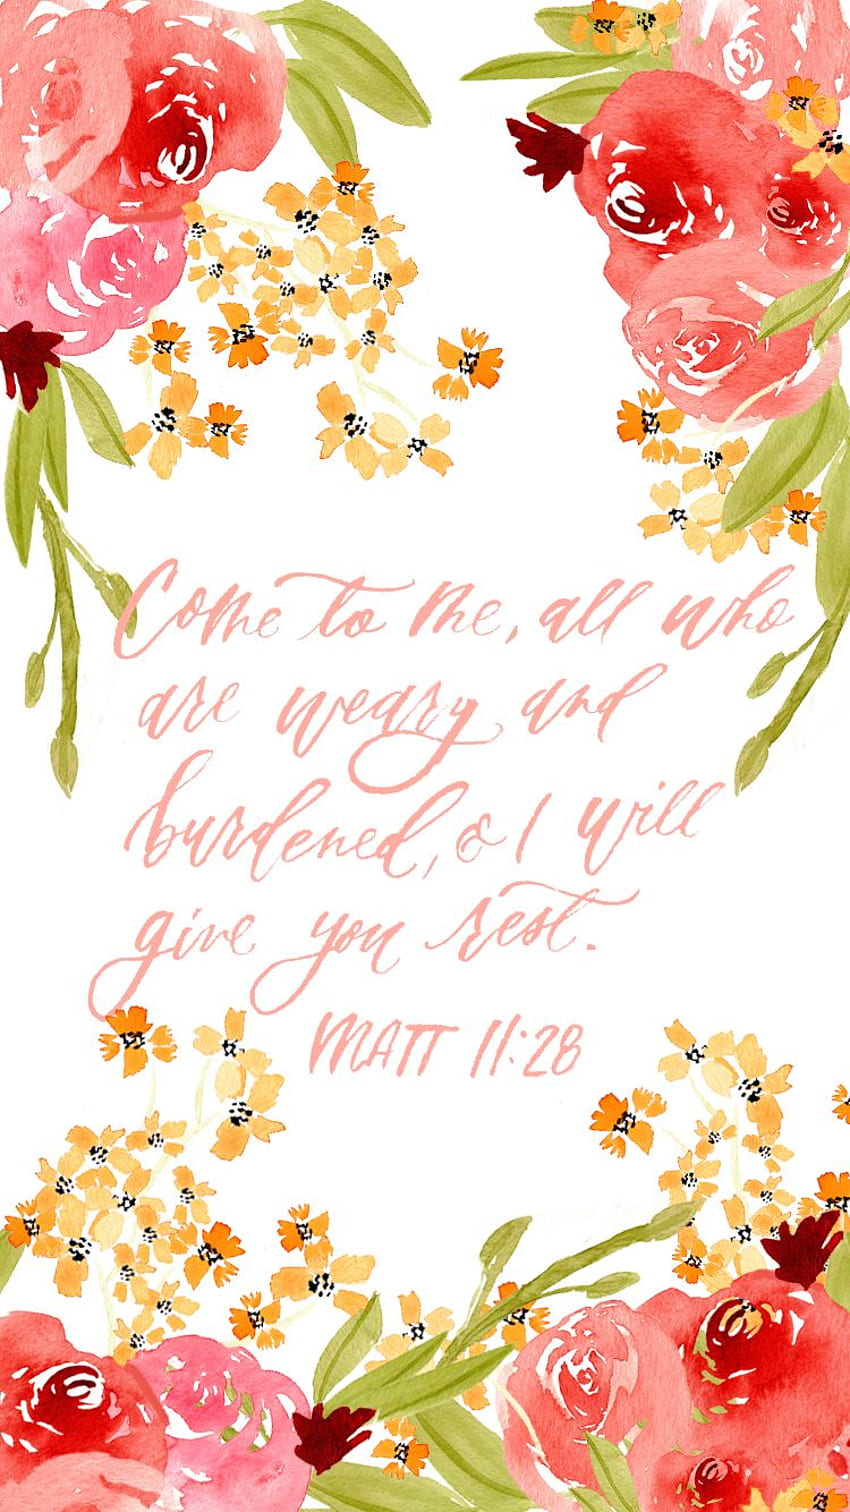 Come to me, all who
are weary and
burdened, & I will
give you rest.
MATT 11:28